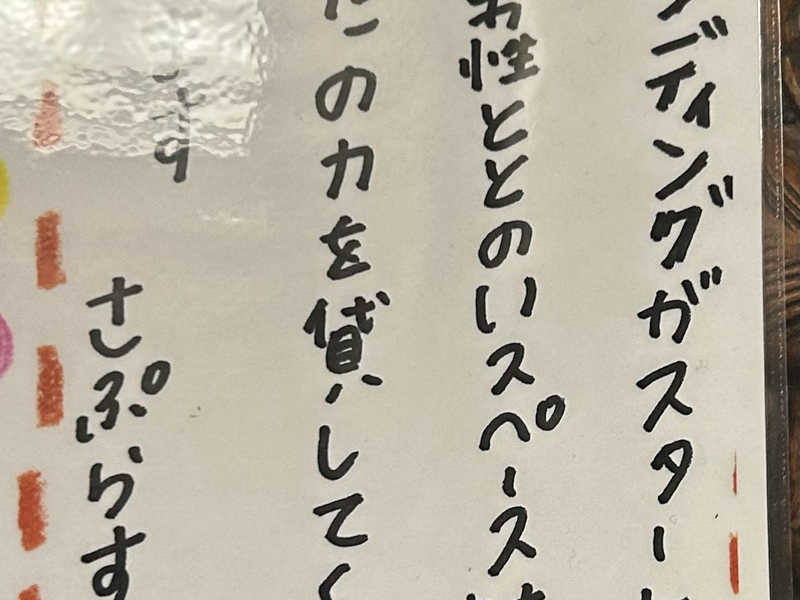 ンディングがスター
男性ととのいスペース
たの力を貸して
ます
さぷらす